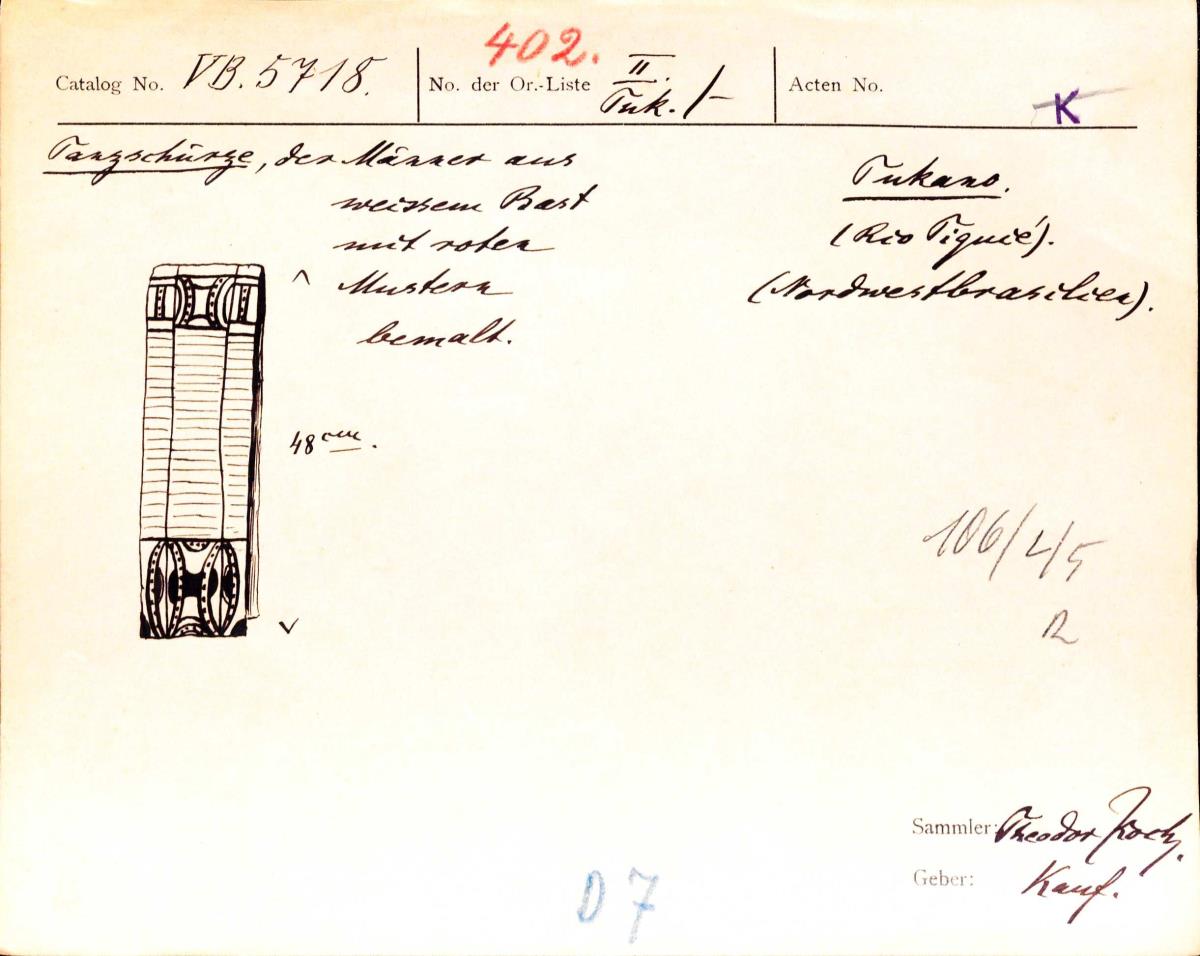 402.
Catalog No. VB. 5718.
No. der Or.-Liste II. Tuk. /-
Acten No.
K
Tanzschürze, der Männer aus
weissem Bast
mit roten
Mustern
bemalt.
Tukano.
(Rio Tiquié).
(Nordwestbrasilien).
48 cm.
106/4/5
Sammler: Theodor Koch.
Geber: Kauf.
D 7